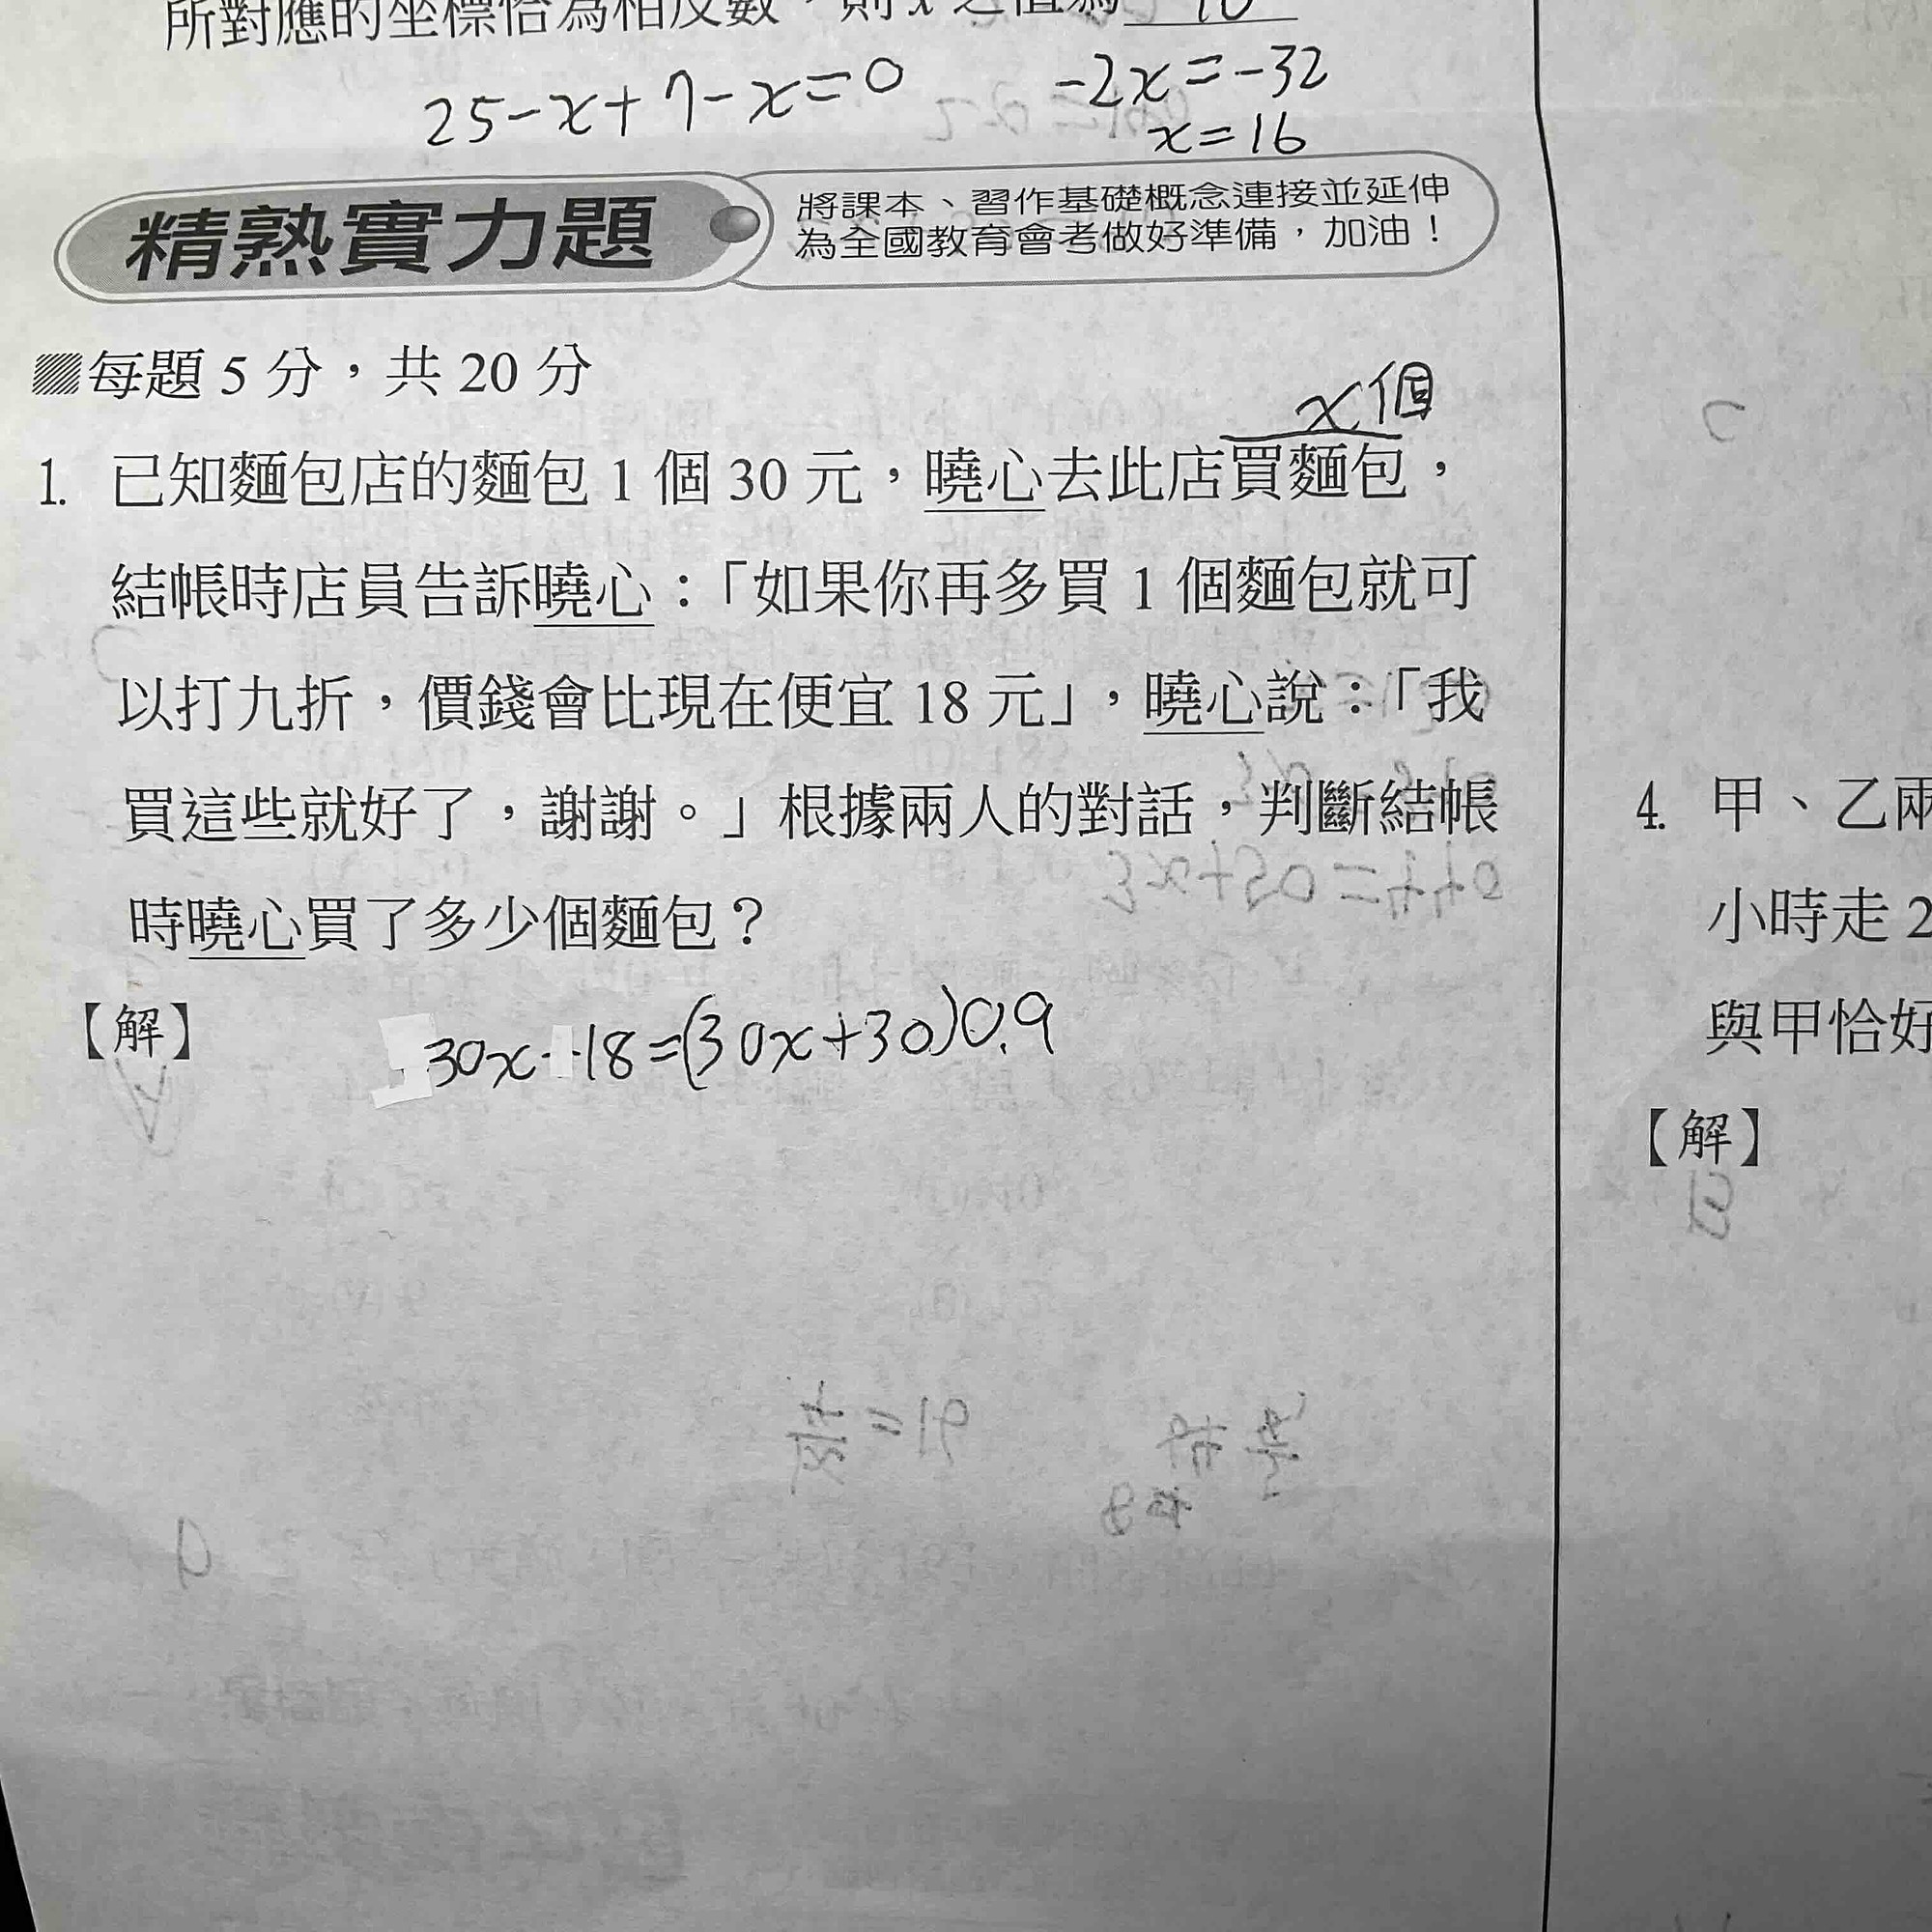 所對應的坐標恰為相反數，則x之值為 16
25-x+7-x=0
-2x=-32
x=16
精熟實力題
將課本、習作基礎概念連接並延伸
為全國教育會考做好準備，加油！
每題 5 分，共 20 分
x個
1. 已知麵包店的麵包 1 個 30 元，曉心去此店買麵包，
結帳時店員告訴曉心：「如果你再多買 1 個麵包就可
以打九折，價錢會比現在便宜 18 元」，曉心說：「我
買這些就好了，謝謝。」根據兩人的對話，判斷結帳
時曉心買了多少個麵包？
【解】
30x-18=(30x+30)0.9
4. 甲、乙兩
小時走 2
與甲恰好
【解】